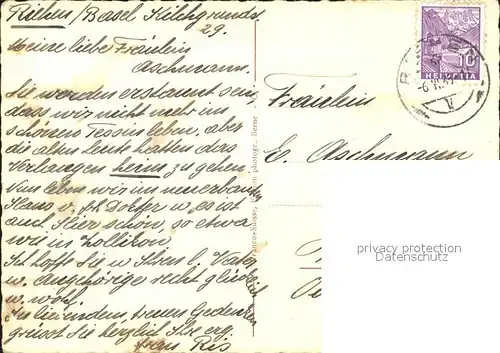 Riehen/Basel Kilchgrundstr
29.
Meine liebe Fräulein
Aschmann.
Sie werden erstaunt sein,
dass wir nicht mehr im
schönen Tessin leben, aber
die alten Leute hatten das
Verlangen heim zu gehen.
Nun leben wir im neuerbauten
Haus u. Dörfer u. es ist
auch Hier schön, so etwa
wie in Zollikon.
Ich hoffe Sie u. Ihren l. Vater
u. Angehörige recht glücklich
u. wohl.
In liebendem, treuen Gedenken
grüsst Sie herzlich Ihre erg.
Frau Ris
Franco-Suisse, photogr., Berne
10
HELVETIA
Fräulein
E. Aschmann
privacy protection
www.akpool.de